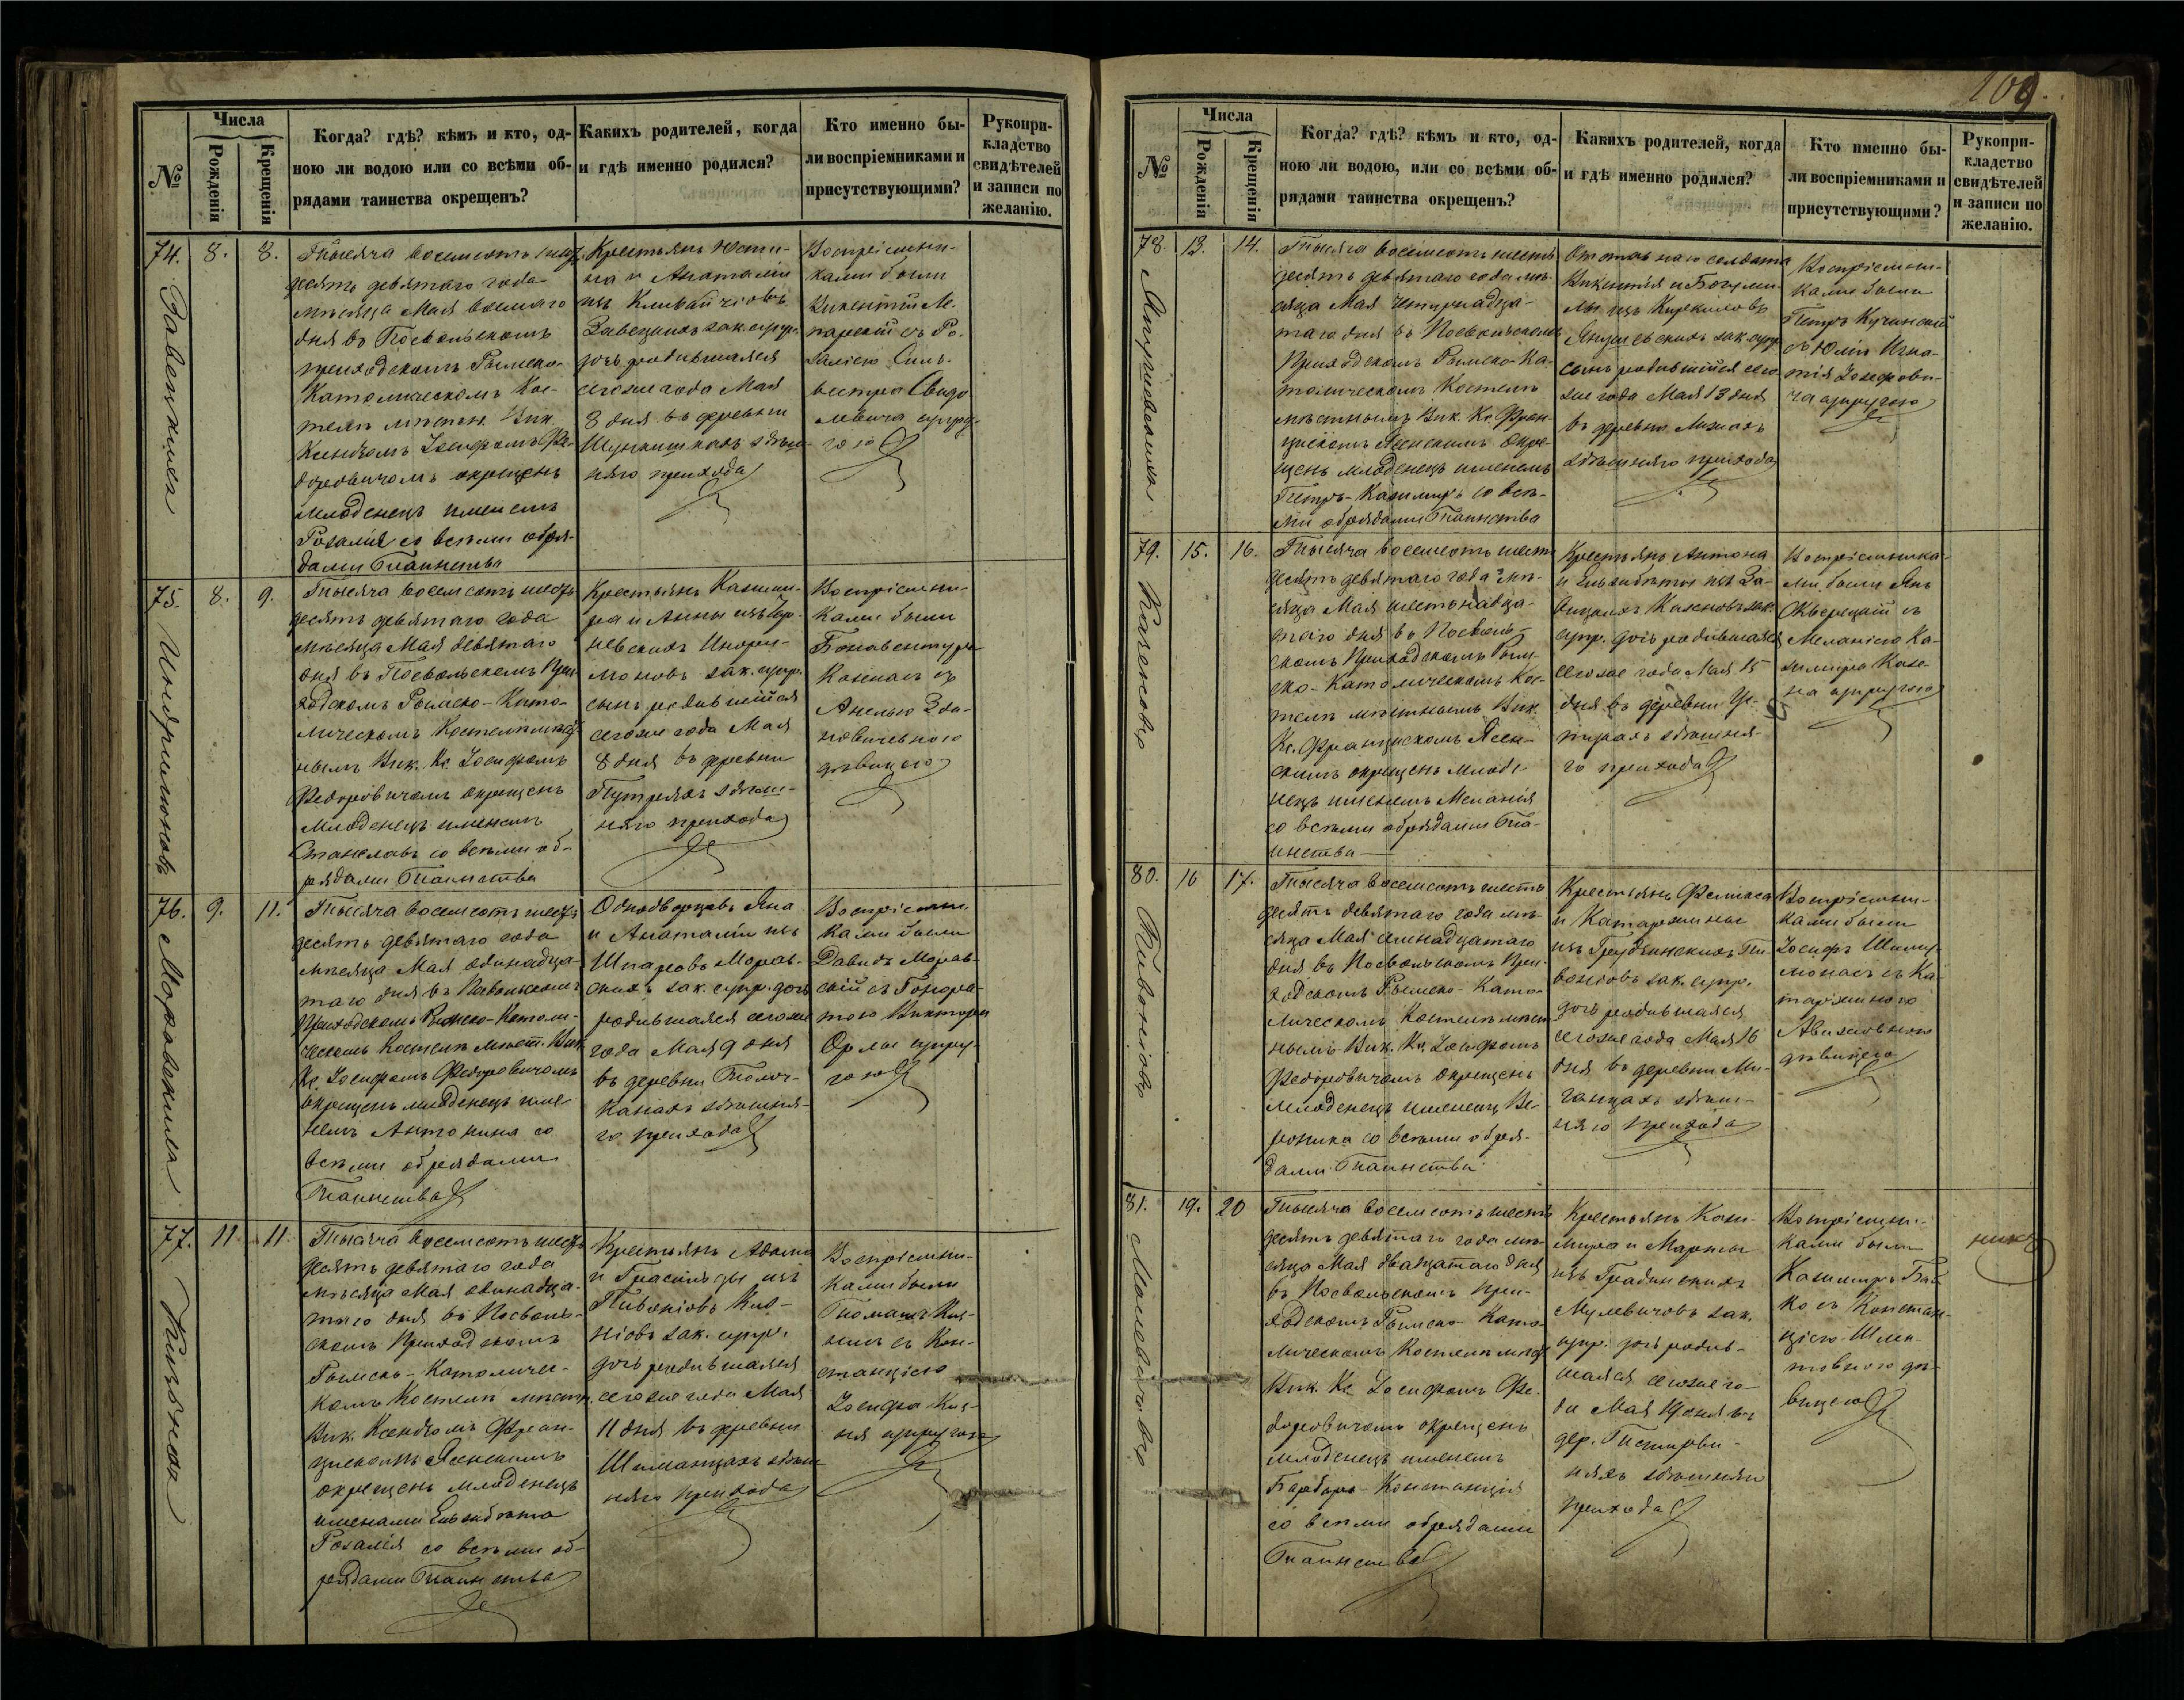 №
Числа
Рожденія
Крещенія
Когда? гдѣ? кѣмъ и кто, од-
ною ли водою или со всѣми об-
рядами таинства окрещенъ?
Какихъ родителей, когда
и гдѣ именно родился?
Кто именно бы-
ли воспріемниками и
присутствующими?
Рукопри-
кладство
свидѣтелей
и записи по
желанію.
74.
8.
8.
Тысяча восемсотъ шест
десятъ девятаго года
мѣсяца Мая восмаго
дня въ Посвольскомъ
приходскомъ Римско-
Католическомъ Кос-
телѣ мѣстн. Вик.
Ксендзомъ Іосифомъ Фе-
доровичомъ окрещенъ
младенецъ именемъ
Розалія со всѣми обря-
дами Таинства
Крестьянъ Юсти-
на и Анатоліи
изъ
зак. супр.
дочь родившаяся
сегоже года Мая
8 дня въ деревни
здѣш-
няго прихода
Воспріемни-
ками были
Викентій
съ Ро-
заліею Силь-
вестра Свидо
левича супру-
гою
75.
8.
9.
Тысяча восемсотъ шест
десятъ девятаго года
мѣсяца Мая девятаго
дня въ Посвольскомъ При
ходскомъ Римско-Като-
лическомъ Костелѣ мѣст
нымъ Вик. Кс. Іосифомъ
Федоровичомъ окрещенъ
младенецъ именемъ
Станиславъ со всѣми об-
рядами Таинства
Крестьянъ Казими-
ра и Анны изъ
зак. супр.
сынъ родившійся
сегоже года Мая
8 дня въ деревни
Путряхъ здѣш-
няго прихода
Воспріемни-
ками были
Бонавентура
съ
Анелью Зда-
новичевною
дѣвицею
76.
9.
11.
Моравскила
Тысяча восемсотъ шест
десятъ девятаго года
мѣсяца Мая одинадца-
таго дня въ Посвольскомъ
Приходскомъ Римско-Католи-
ческомъ Костелѣ мѣст. Вик
Кс. Іосифомъ Федоровичомъ
окрещенъ младенецъ име-
немъ Антонина со
всѣми обрядами
Таинства
Однодворцовъ Яна
и Анатоліи изъ
Шпаровъ Морав-
скихъ зак. супр. дочь
родившаяся сегоже
года Мая 9 дня
въ деревни
здѣшня-
го прихода
Воспріемни
ками были
Давидъ Морав-
скій съ Гонора-
тою Виктора
Орлы супру-
гою
77.
11.
11.
Тысяча восемсотъ шест
десятъ девятаго года
мѣсяца Мая одинадца-
таго дня въ Посволь-
скомъ Приходскомъ
Римско-Католичес-
комъ Костелѣ мѣстн.
Вик. Ксендзомъ Фран-
цискомъ Ясенскимъ
окрещенъ младенецъ
именами Елизабета
Розалія со всѣми об-
рядами Таинства
Крестьянъ Адама
и Грасильды изъ
Пивоніовъ
зак. супр.
дочь родившаяся
сегоже года Мая
11 дня въ деревни
Шиманцахъ здѣш
няго прихода
Воспріемни-
ками были
Томашъ
съ Кон-
станціею
Іосифа
супругою
109.
№
Числа
Рожденія
Крещенія
Когда? гдѣ? кѣмъ и кто, од-
ною ли водою, или со всѣми об-
рядами таинства окрещенъ?
Какихъ родителей, когда
и гдѣ именно родился?
Кто именно бы-
ли воспріемниками и
присутствующими?
Рукопри-
кладство
свидѣтелей
и записи по
желанію.
78.
13.
14.
Тысяча восемсотъ шесть
десятъ девятаго года мѣ-
сяца Мая четырнадца-
таго дня въ Посвольскомъ
Приходскомъ Римско-Ка-
толическомъ Костелѣ
мѣстнымъ Вик. Кс. Фран-
цискомъ Ясенскимъ окре-
щенъ младенецъ именемъ
Петръ-Казимиръ со всѣ-
ми обрядами Таинства
Отставнаго солдата
Викентія и Богуми-
лы изъ
зак. супр
сынъ родившійся сего
же года Мая 13 дня
въ деревни
здѣшняго прихода
Воспріемни-
ками были
Петръ Кучинскій
съ Юлію Игна-
тія Іозефови-
ча супругою
79.
15.
16.
Козеновъ
Тысяча восемсотъ шесть
десятъ девятаго года мѣ-
сяца Мая шестнадца-
таго дня въ Посволь-
скомъ Приходскомъ Рим-
ско-Католическомъ Кос-
телѣ мѣстнымъ Вик.
Кс. Францискомъ Ясен-
скимъ окрещенъ младе-
нецъ именемъ Меланія
со всѣми обрядами Та-
инства
Крестьянъ Антона
и Елизабеты изъ
Козеновъ зак.
супр. дочь родившаяся
сегоже года Мая 15
дня въ деревни
здѣшня-
го прихода
Воспріемника-
ми были Янъ
съ
Меланіею Ка-
зимира Козе-
на супругою
80.
16
17.
Пивоніовъ
Тысяча восемсотъ шесть
десятъ девятаго года мѣ-
сяца Мая семнадцатаго
дня въ Посвольскомъ При-
ходскомъ Римско-Като-
лическомъ Костелѣ мѣст
нымъ Вик. Кс. Іосифомъ
Федоровичомъ окрещенъ
младенецъ именемъ Ве-
роника со всѣми обря-
дами Таинства
Крестьянъ Феликса
и Катаржины
изъ Грудзинскихъ Пи-
воніовъ зак. супр.
дочь родившаяся
сегоже года Мая 16
дня въ деревни Ми-
ганцахъ здѣш-
няго прихода
Воспріемни-
ками были
Іосифъ Шиму-
монасъ съ Ка-
таржиною
дѣвицею
81.
19.
20
Тысяча восемсотъ шесть
десятъ девятаго года мѣ-
сяца Мая двадцатаго дня
въ Посвольскомъ При-
ходскомъ Римско-Като-
лическомъ Костелѣ мѣст
Вик. Кс. Іосифомъ Фе-
доровичомъ окрещенъ
младенецъ именемъ
Барбара-Констанція
со всѣми обрядами
Таинства
Крестьянъ Кази-
мира и Марты
изъ Градинскихъ
зак.
супр. дочь родив-
шаяся сегоже го-
да Мая 19 дня въ
дер.
здѣшняго
прихода
Воспріемни-
ками были
Казимиръ
съ Констан-
ціею
дѣ-
вицею